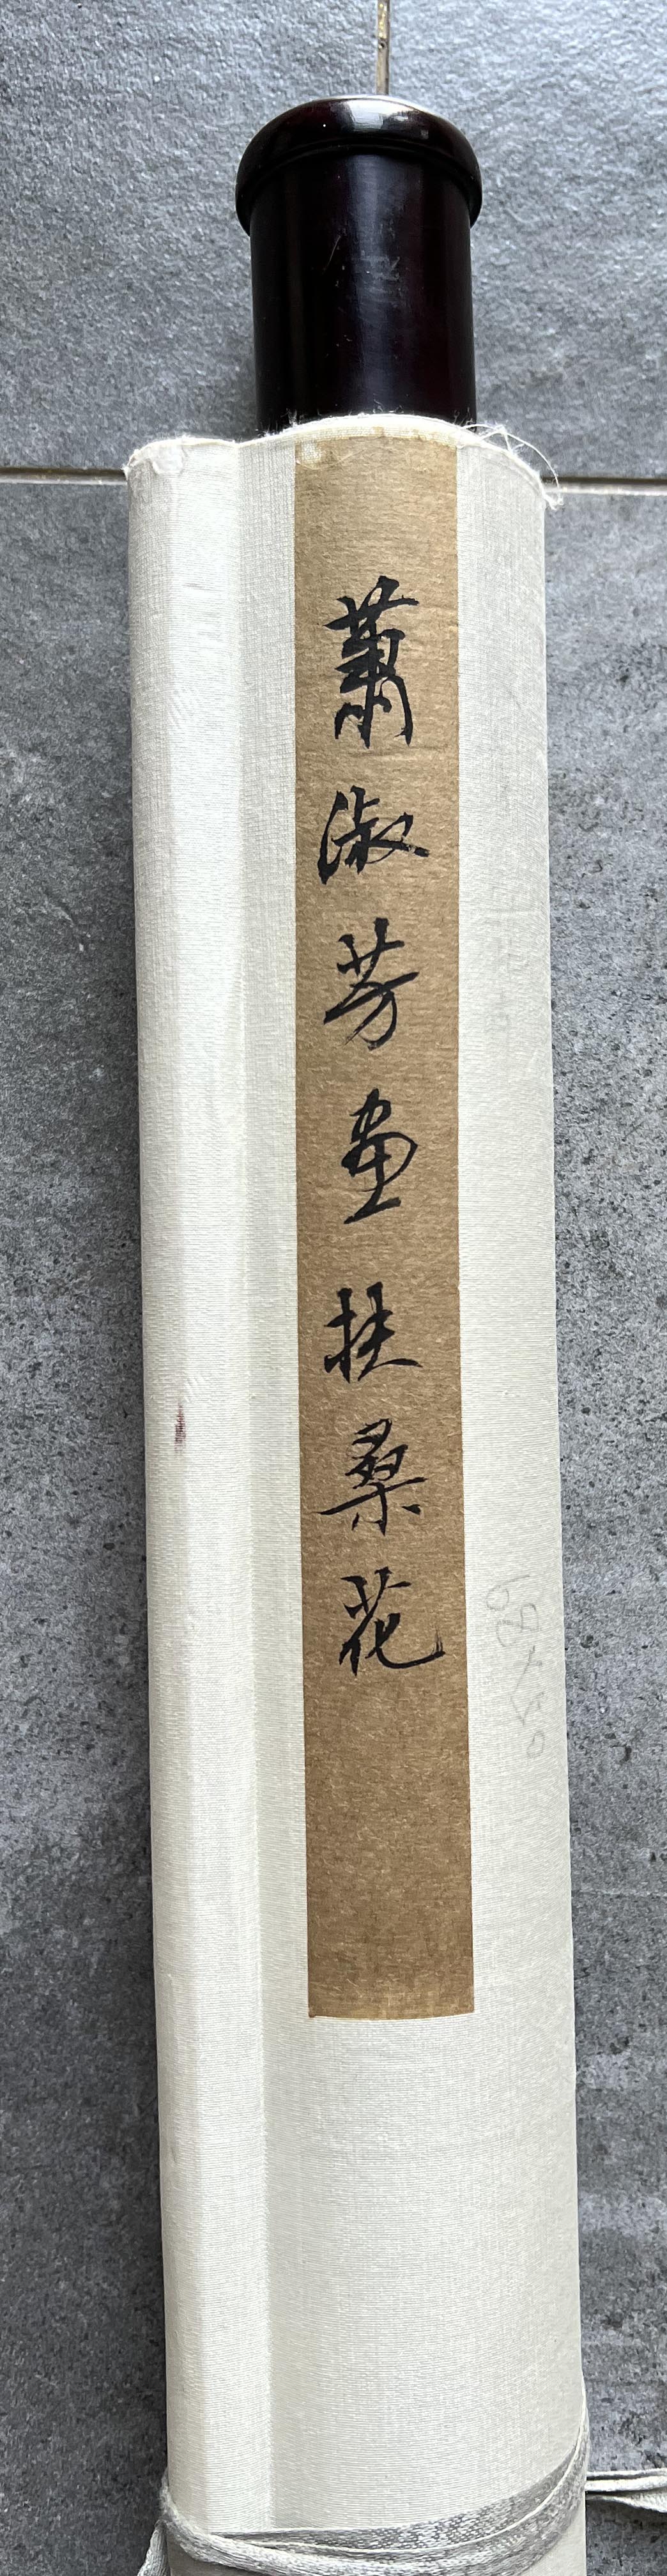 蕭淑芳画扶桑花
68×50